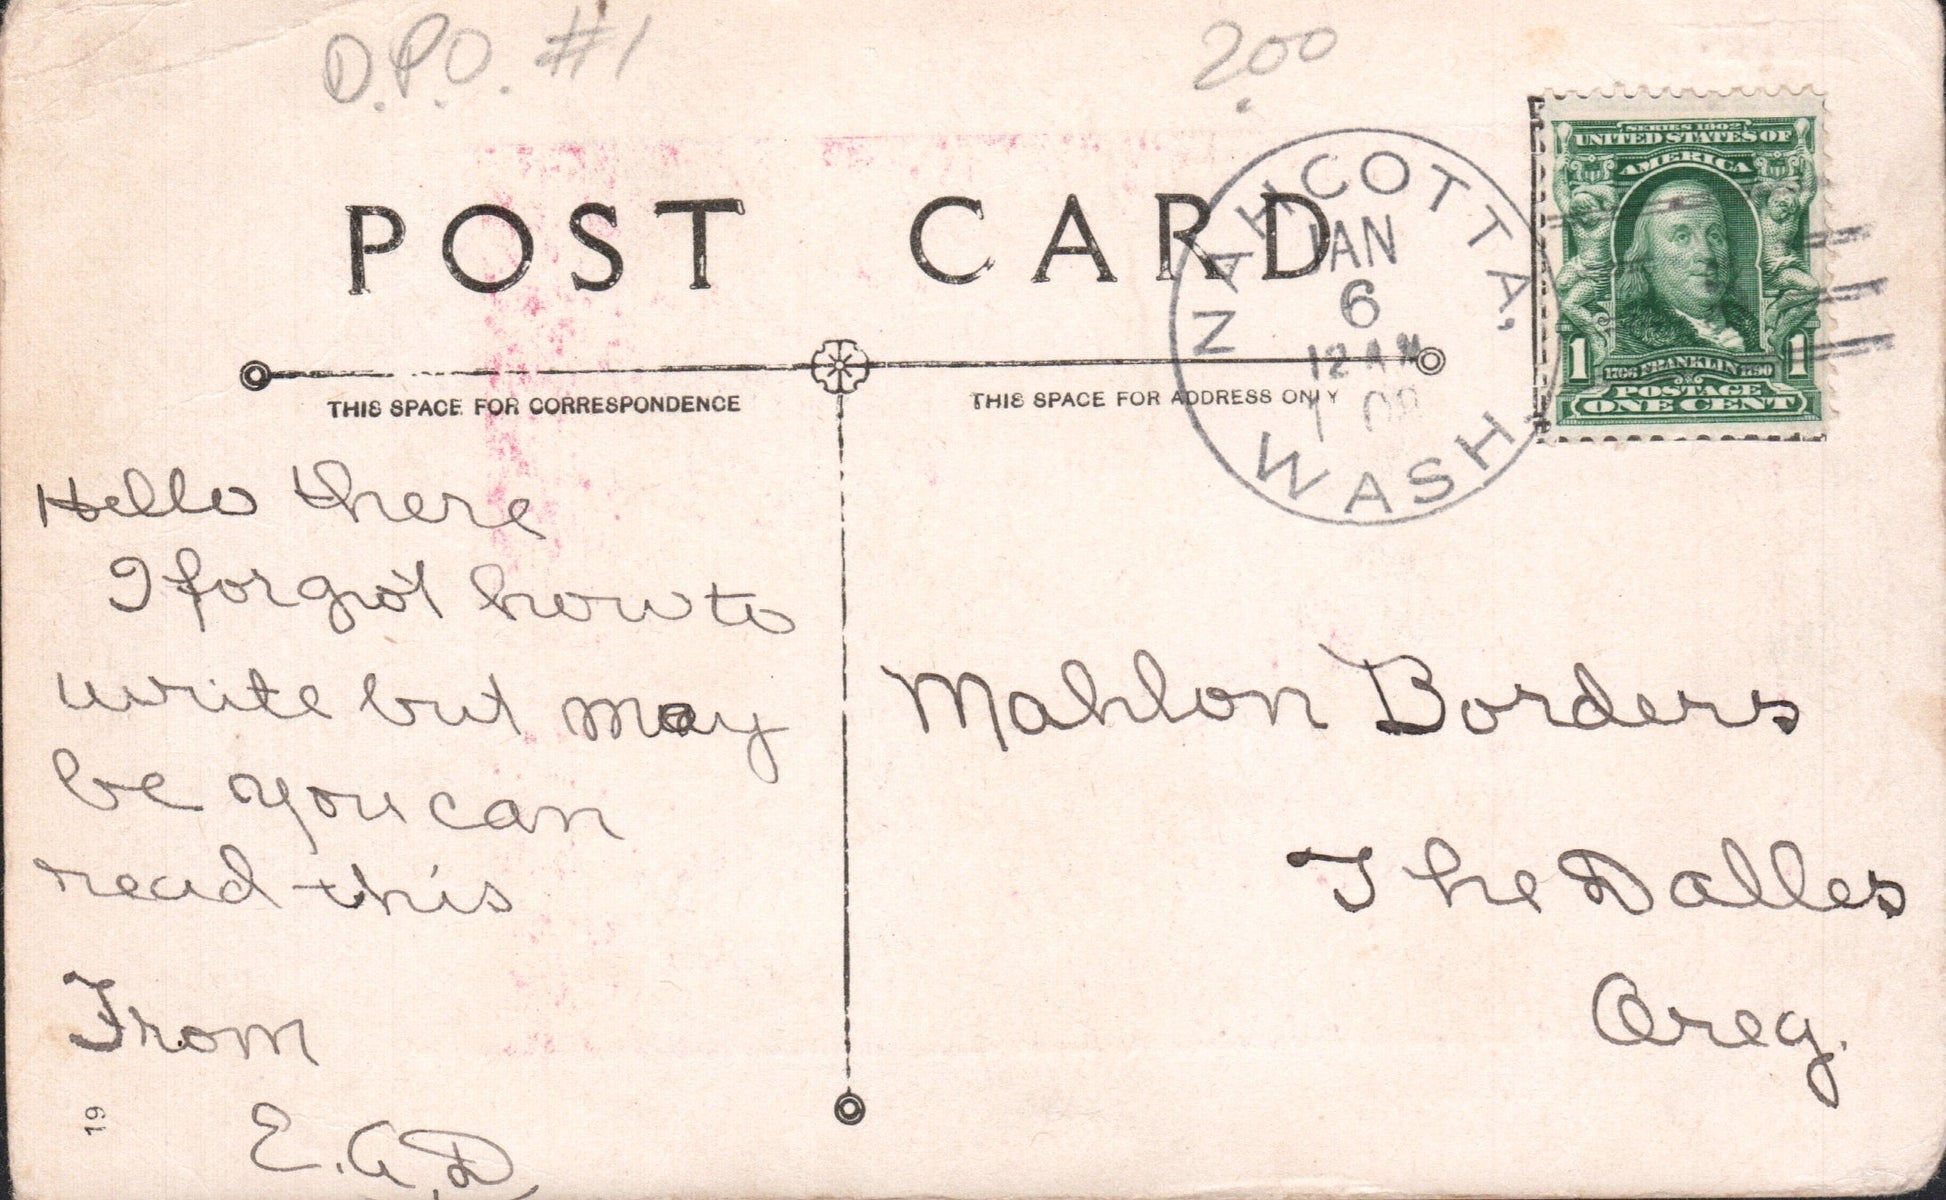 D.P.O. #1
2.00
POST CARD
NAHCOTTA, WASH.
JAN
6
12 AM
SERIES 1902
UNITED STATES OF
AMERICA
1706 FRANKLIN 1790
1 1
POSTAGE
ONE CENT
THIS SPACE FOR CORRESPONDENCE
THIS SPACE FOR ADDRESS ONLY
Hello there
I forgot how to
write but may
be you can
read this
From
E.A.D.
19
Mahlon Borders
The Dalles
Oreg.